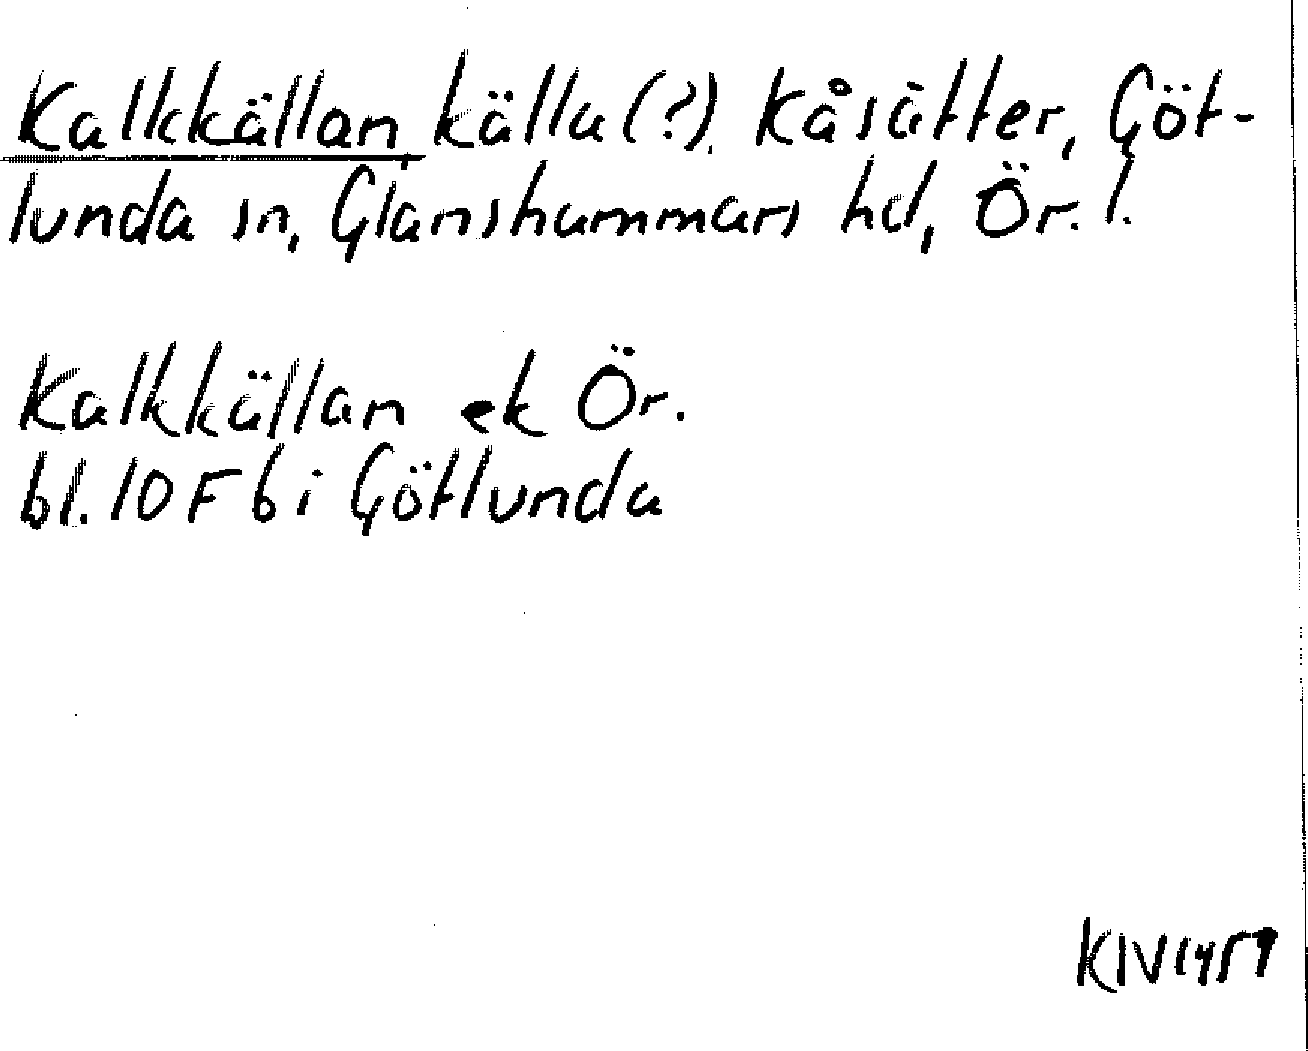 Kalkkällan, källa (?), Kåsätter, Göt-
lunda sn, Glanshammars hd, Ör. l.
Kalkkällan ek Ör.
bl. 10 F 6 i Götlunda